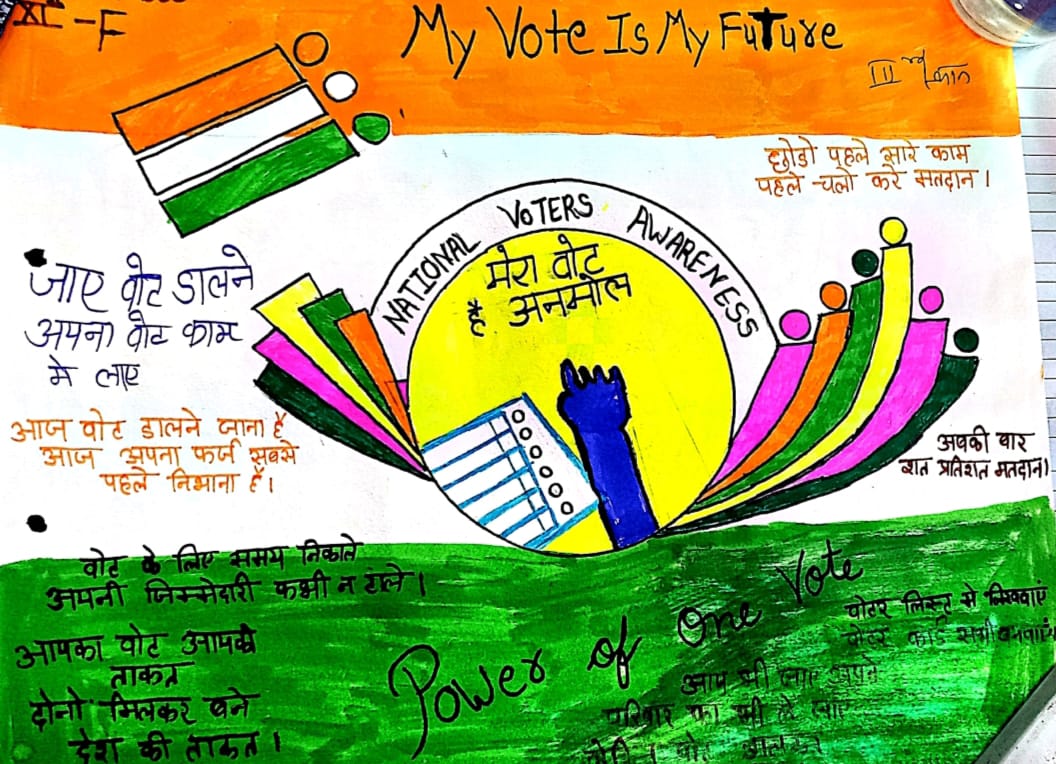 XI - F
My Vote Is My Future
III
छोडो पहले सारे काम
पहले चलो करे मतदान ।
NATIONAL VOTERS AWARENESS
मेरा वोट
है अनमोल
जाए वोट डालने
अपना वोट काम
मे लाए
आज वोट डालने जाना है
आज अपना फर्ज सबसे
पहले निभाना है ।
अबकी बार
शत प्रतिशत मतदान ।
वोट के लिए समय निकाले
अपनी जिम्मेदारी कभी न टाले ।
आपका वोट आपकी
ताकत
दोनो मिलकर बने
देश की ताकत ।
Power of One Vote
वोटर लिस्ट से लिखवाएं
वोटर कार्ड सभी बनवाएं
आप भी जाए अपने
परिवार को भी ले जाए
वोट डालकर